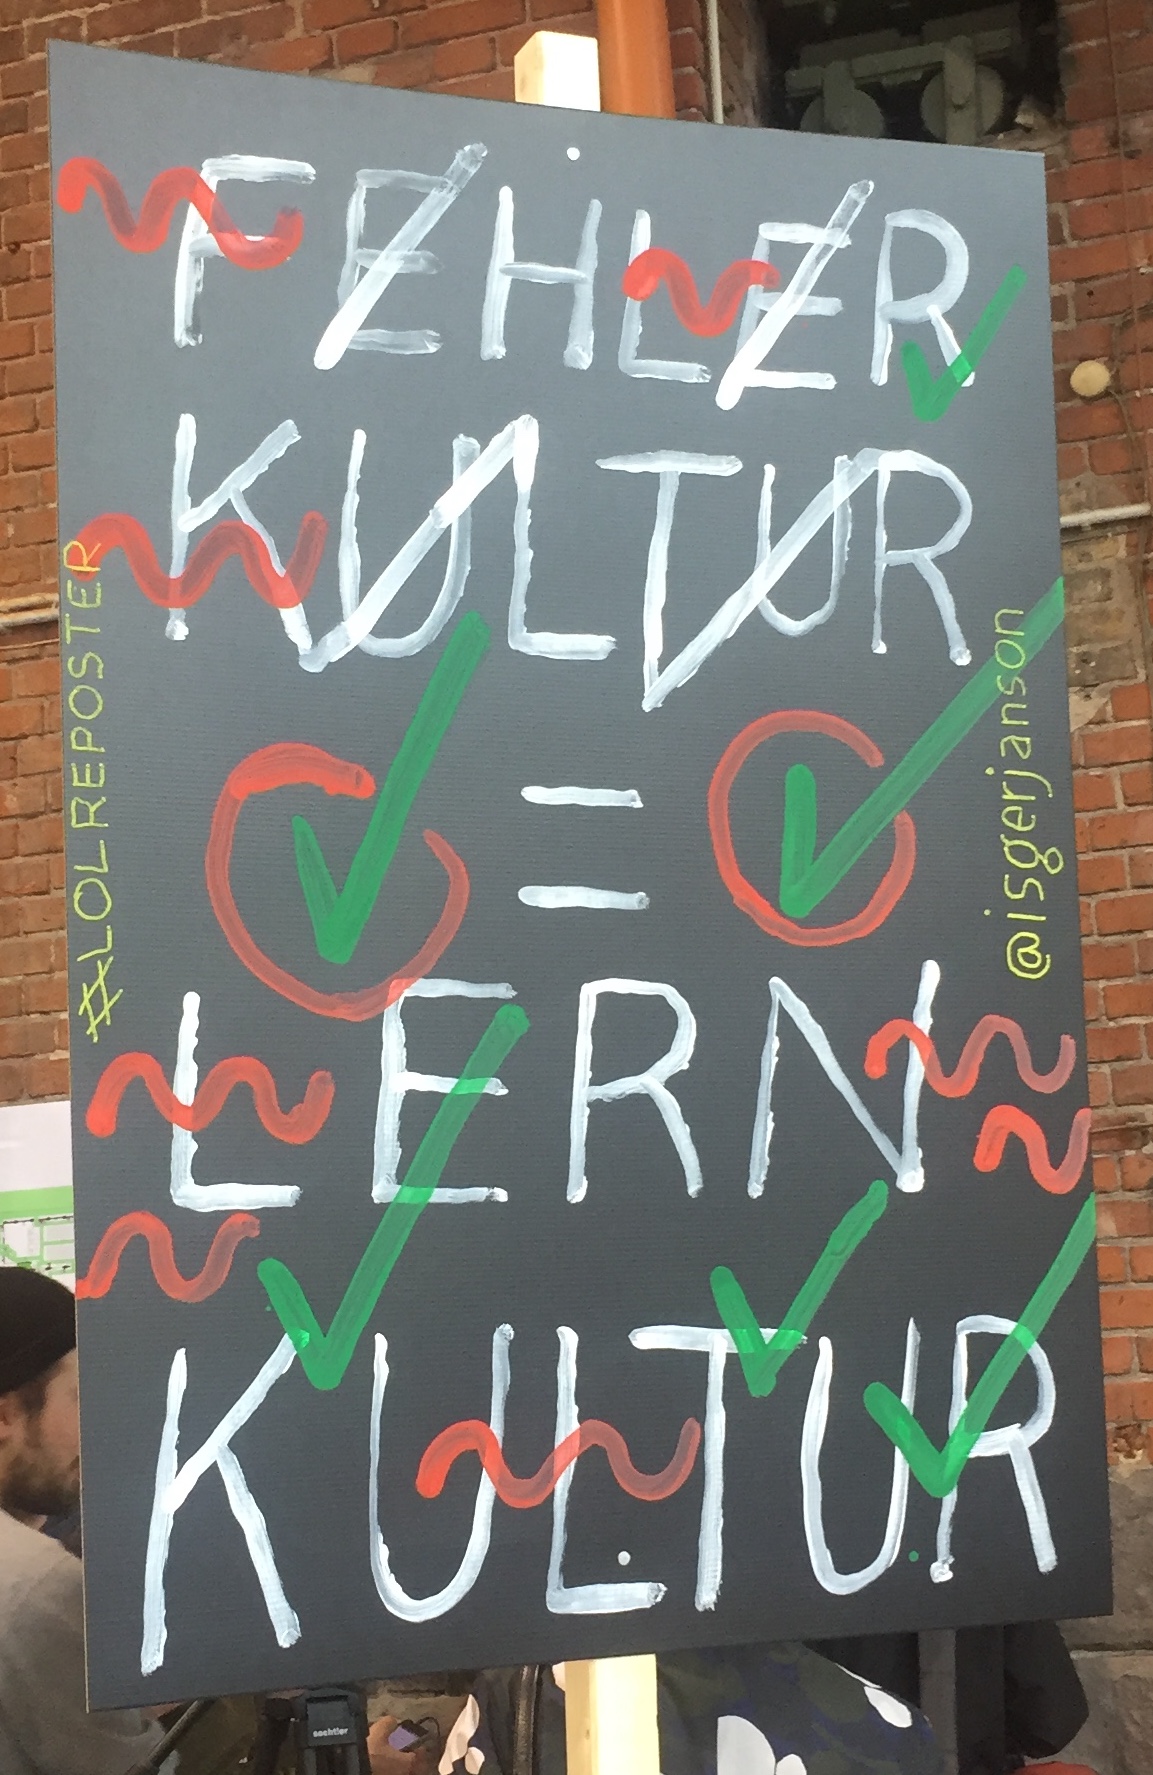 FEHLER
KULTUR
=
LERN
KULTUR
#LOLREPOSTER
@isgerjanson
sachtler